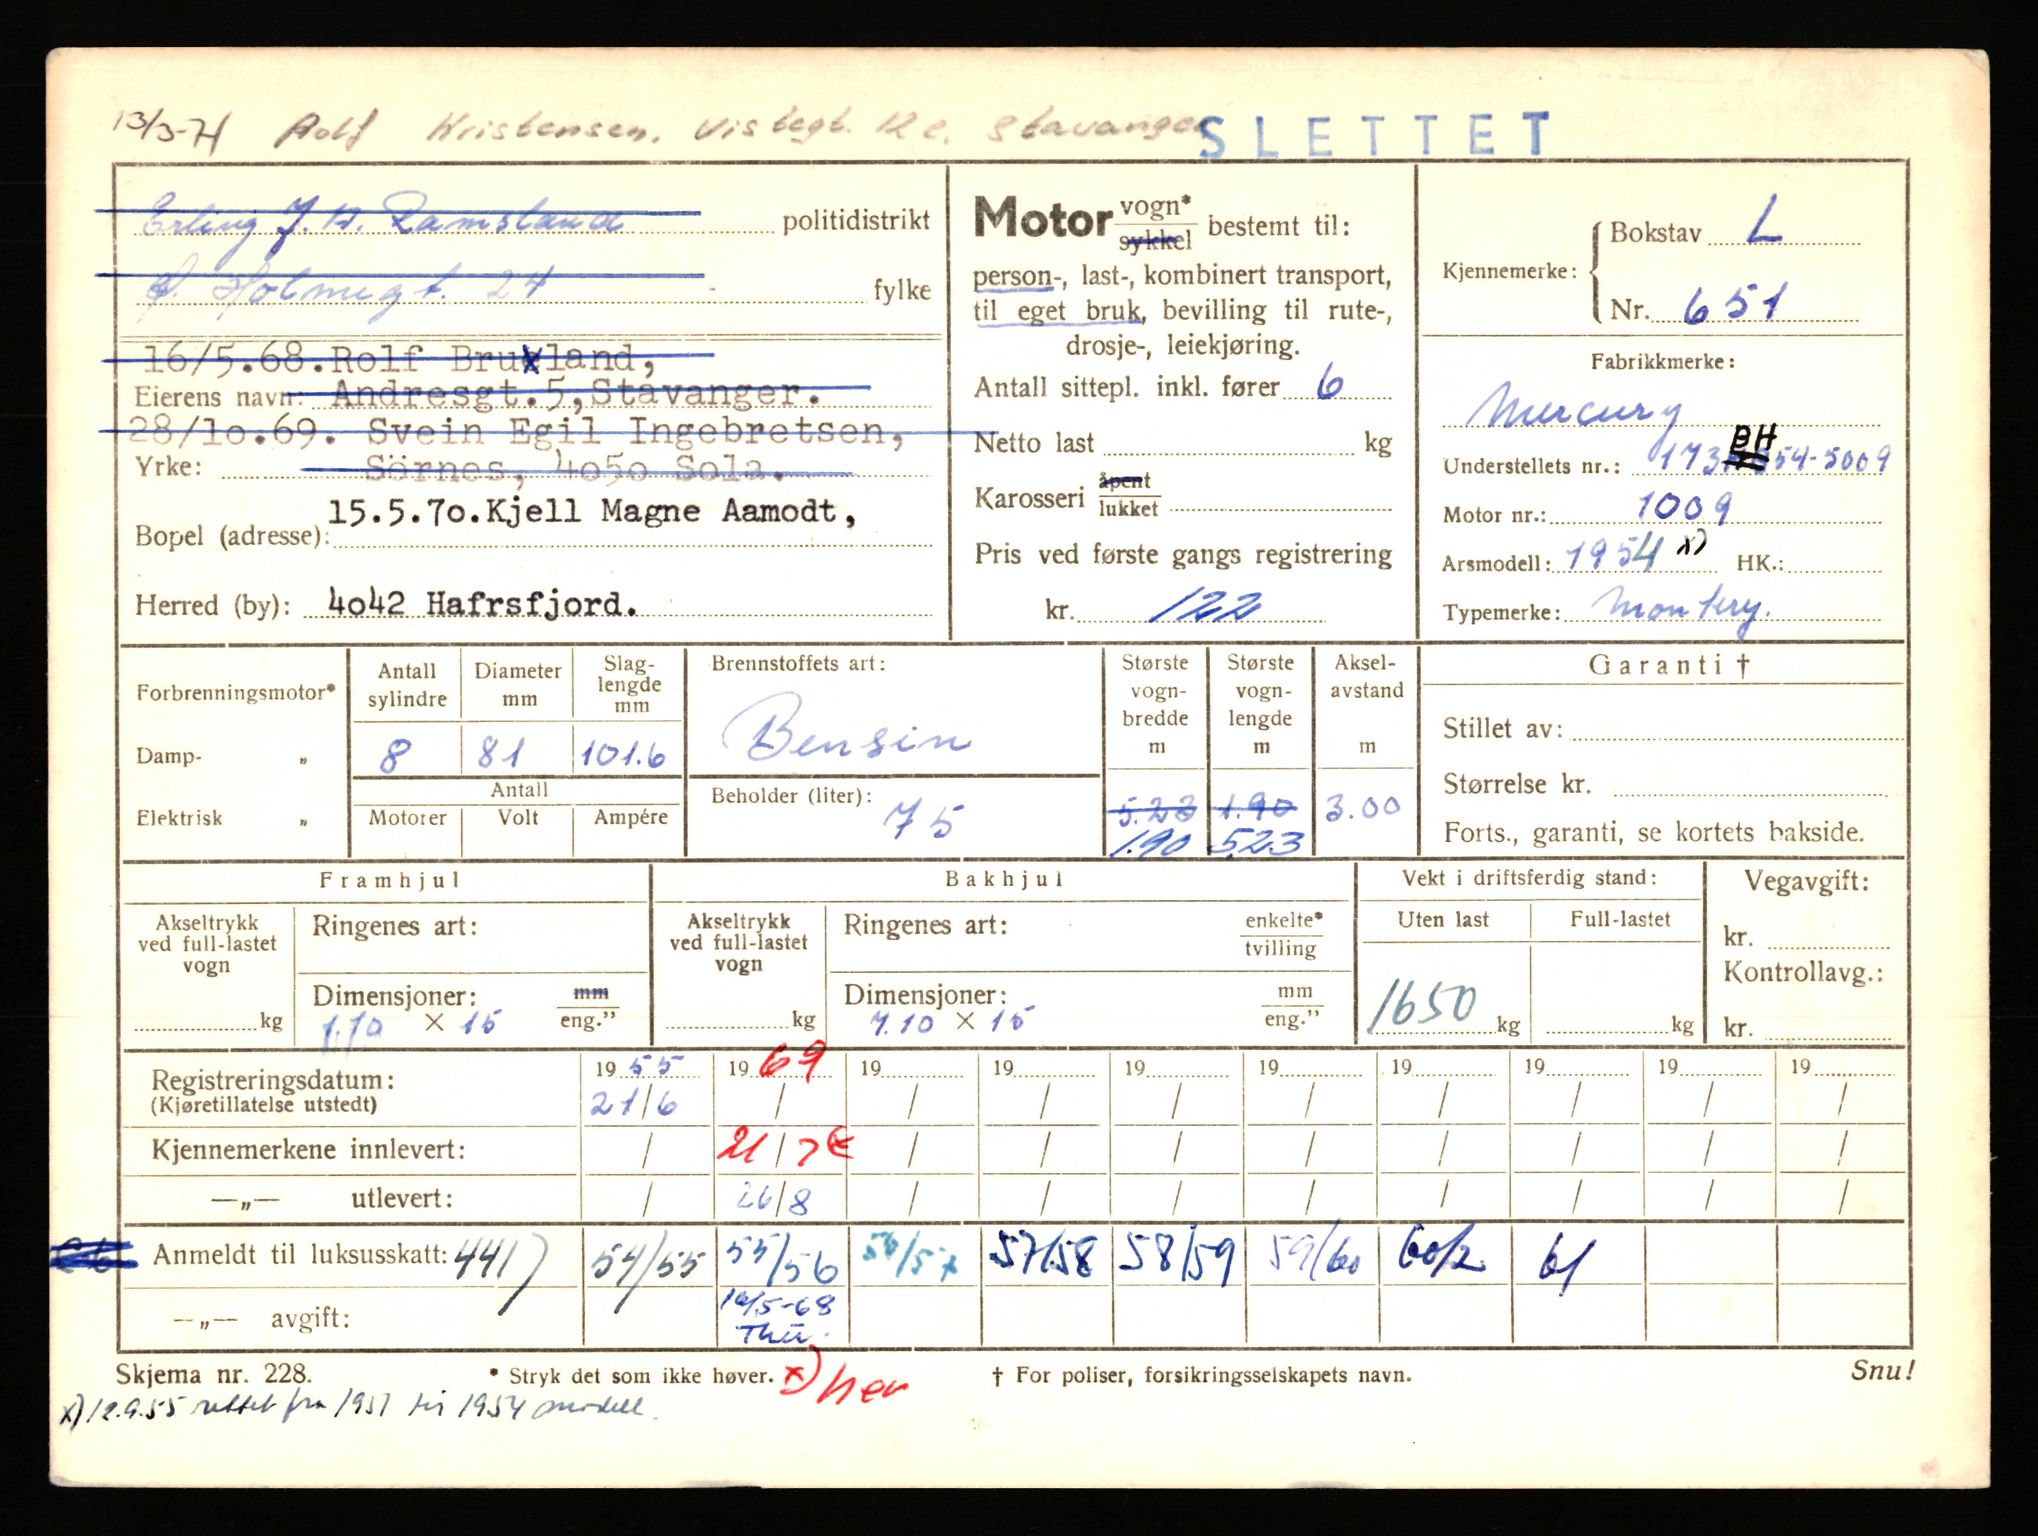 13/3-71 Rolf Kristensen. Vistegt. 12 c. Stavanger SLETTET
Erling J. H. Ramsland politidistrikt
Ø. Holmegt. 24 fylke
16/5.68.Rolf Brueland,
Eierens navn: Andresgt.5,Stavanger.
28/10.69. Svein Egil Ingebretsen,
Yrke: Sörnes, 4050 Sola.
15.5.70.Kjell Magne Aamodt,
Bopel (adresse):
Herred (by): 4042 Hafrsfjord.
Motor vogn* sykkel bestemt til:
person-, last-, kombinert transport,
til eget bruk, bevilling til rute-,
drosje-, leiekjøring.
Antall sittepl. inkl. fører 6
Netto last kg
Karosseri åpent lukket
Pris ved første gangs registrering
kr. 122
Kjennemerke: Bokstav L
Nr. 651
Fabrikkmerke:
Mercury
Understellets nr.: 173 BH 54-5009
Motor nr.: 1009
Arsmodell: 1954 x) HK.:
Typemerke: Montery.
Forbrenningsmotor*
Damp- „
Elektrisk „
Antall sylindre 8
Diameter mm 81
Slag-lengde mm 101.6
Antall
Motorer Volt Ampére
Brennstoffets art:
Bensin
Beholder (liter): 75
Største vogn-bredde m 5.23 1.90
Største vogn-lengde m 1.90 523
Aksel-avstand m 3.00
Garanti †
Stillet av:
Størrelse kr.
Forts., garanti, se kortets bakside.
Framhjul
Akseltrykk ved full-lastet vogn kg
Ringenes art:
Dimensjoner: mm eng."
7.10 × 15
Bakhjul
Akseltrykk ved full-lastet vogn kg
Ringenes art: enkelte* tvilling
Dimensjoner: mm eng."
7.10 × 15
Vekt i driftsferdig stand:
Uten last Full-lastet
1650 kg kg
Vegavgift:
kr.
Kontrollavg.:
kr.
19 55 19 69 19 19 19 19 19 19 19 19
Registreringsdatum:
(Kjøretillatelse utstedt) 21/6 / / / / / / / / /
Kjennemerkene innlevert: / 21/7 / / / / / / / /
—„— utlevert: / 26/8 / / / / / / / /
Anmeldt til luksusskatt: 441 54/55 55/56 56/57 57/58 58/59 59/60 60/2. 61
—„— avgift: 16/5-68
Skjema nr. 228. * Stryk det som ikke høver. x) her † For poliser, forsikringsselskapets navn. Snu!
x) 12.9.55 rettet fra 1951 til 1954 modell.